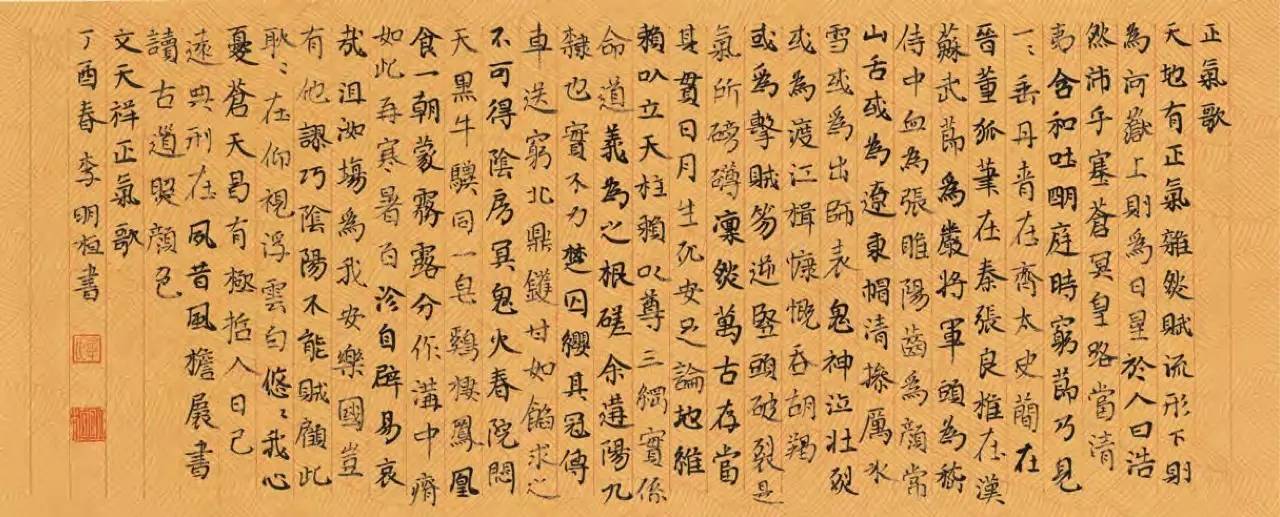 正氣歌
天地有正氣雜然賦流形下則
為河嶽上則為日星於人曰浩
然沛乎塞蒼冥皇路當清
夷含和吐明庭時窮節乃見
一〻垂丹青在齊太史簡在
晉董狐筆在秦張良椎在漢
蘇武節為嚴將軍頭為嵇
侍中血為張睢陽齒為顏常
山舌或為遼東帽清操厲冰
雪或為出師表鬼神泣壯烈
或為渡江楫慷慨吞胡羯
或為擊賊笏逆豎頭破裂是
氣所磅礴凜然萬古存當
其貫日月生死安足論地維
賴以立天柱賴以尊三綱實係
命道義為之根磋余遘陽九
隸也實不力楚囚纓其冠傳
車送窮北鼎鑊甘如飴求之
不可得陰房冥鬼火春院閟
天黑牛驥同一皂鷄棲鳳凰
食一朝蒙霧露分作溝中瘠
如此再寒暑百沴自辟易哀
哉沮洳場為我安樂國豈
有他謬巧陰陽不能賊顧此
耿〻在仰視浮雲白悠〻我心
憂蒼天曷有極哲人日已
遠典刑在夙昔風檐展書
讀古道照顏色
文天祥正氣歌
丁酉春 李明桓書